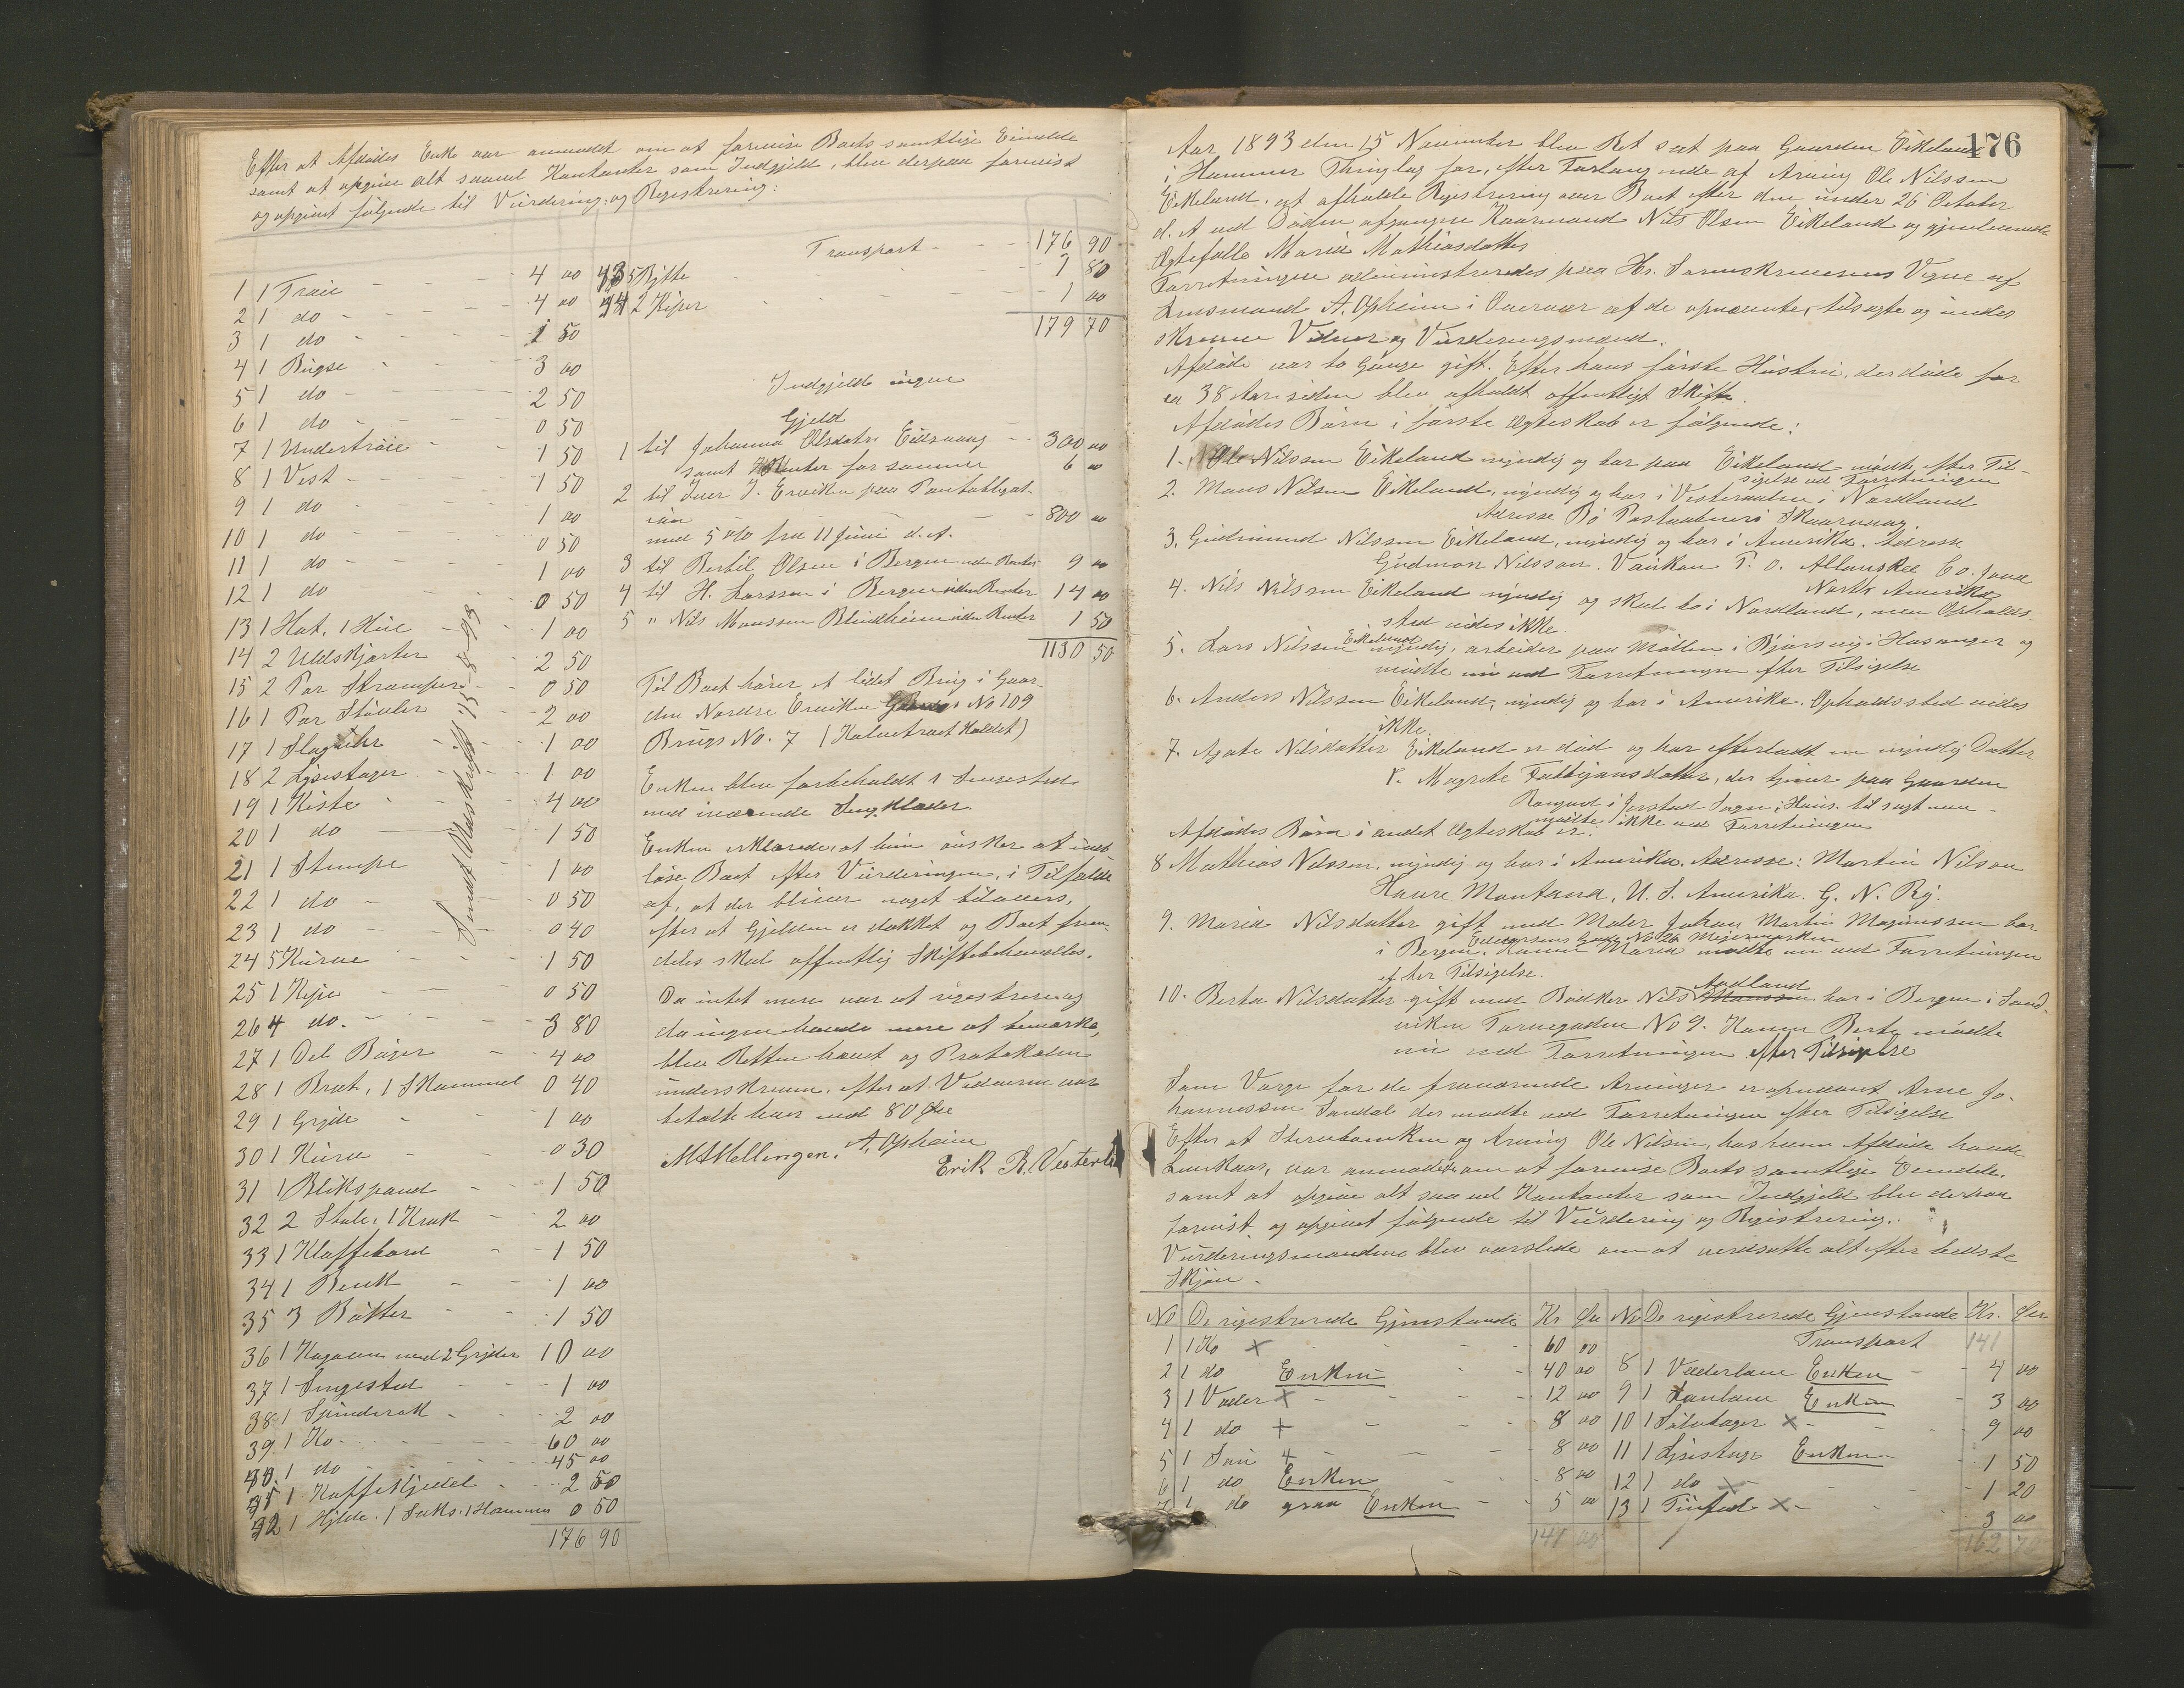 Efter at Afdødes Enke var anmodet om at forevise Boets samtlige Eiendele
samt at opgive alt saavel Kontanter som Indgjeld, blev derpaa forevist
og opgivet følgende til Vurdering og Registrering:
1 1 Trøie - 4 00
2 1 do - 4 00
3 1 do - 1 50
4 1 Buxe - 3 00
5 1 do - 2 50
6 1 do - 0 50
7 1 Undertrøie - 1 50
8 1 Vest - 1 50
9 1 do - 1 00
10 1 do - 0 50
11 1 do - 1 00
12 1 do 0 50
13 1 Hat, 1 Hue - 1 00
14 2 Uldskjorter 2 50
15 2 Par Strømper - 0 50
16 1 Par Støvler 2 00
17 1 1 00
18 2 Lysestager - 1 00
19 1 Kiste - 4 00
20 1 do 1 50
21 1 Stampe 1 00
22 1 do - 0 50
23 1 do - 0 40
24 5 Kurve - 1 50
25 1 Kipe - 0 50
26 4 do. - 3 80
27 1 Del Bøger - 4 00
28 1 Bræt, 1 Skammel 0 40
29 1 Gryde - 1 00
30 1 Kurv - 0 30
31 1 Blikspand - 1 50
32 2 Stole, 1 Krak - 2 00
33 1 Klaffebord - 1 50
34 1 Benk - 1 00
35 3 Bøtter - 1 50
36 1 Kagoven med 2 Gryder 10 00
37 1 Sengested - 1 00
38 1 Spinderok - 2 00
39 1 Ko - 60 00
40 1 do - 45 00
41 1 Kaffekjedel - 2 50
42 1 Hylde, 1 Saks, 1 Hammer 0 50
176 90
Transport - 176 90
43 5 Bøtte - 1 80
44 2 Kiper - 1 00
179 70
Indgjeld ingen
Gjeld
1 til Johanna Olsdatter Eidsvaag - 300 00
samt Renter for samme 6 00
2 til Iver J. Erviken paa Pantobligat-
ion - 800 00
med 5 o/o fra 11 Juni d. A.
3 til Bertil Olsen i Bergen uden Renter 9 00
4 til H. Larssen i Bergen uden Renter 14 00
5 " Nils Monssen Blindheim uden Renter 1 50
1130 50
Til Boet hører et lidet Brug i Gaar-
den Nordre Erviken No 109
Brugs No. 7 (Kalvetræet kaldet)
Enken blev forbeholdt 1 Sengested
med iværende Sengklæder
Enken erklærede, at hun ønsker at ind-
løse Boet efter Vurderingen, i Tilfælde
af, at der bliver noget tilovers,
efter at Gjelden er dækket og Boet frem-
deles skal offentlig Skiftebehandles.
Da intet mere var at registrere og
da ingen havde mere at bemærke,
blev Retten hævet og Protokollen
underskreven, efter at Vidnerne var
betalte hver med 80 Øre
M A Mellingen. A. Opheim
Erik R.
176
Aar 1893 den 15 November blev Ret sat paa Gaarden Eikeland
i Hammer Thinglag for, efter Forlangende af Arving Ole Nilssen
Eikeland, at afholde Registrering over Boet efter den under 26 October
d. A ved Døden afgangne Kaarmand Nils Olsen Eikeland og gjenlevende
Ægtefælle Maria Mathiasdatter
Forretningen administreredes paa Hr. Sorenskriverens Vegne af
Lensmand A. Opheim i Overvær af de opnævnte, tilsagte og under-
skrevne Vidner og Vurderingsmænd.
Afdøde var to Gange gift. Efter hans første Hustru, der døde for
ca 38 Aar siden blev afholdt offentligt Skifte.
Afdødes Børn i første Ægteskab er følgende:
1. Ole Nilssen Eikeland myndig og bor paa Eikeland mødte efter Til-
sigelse ved Forretningen
2. Mons Nilsen Eikeland, myndig og bor i Vesteraalen i Nordland
Adresse Bø Postaabneri Skaarvaag.
3. Gudmund Nilssen Eikeland, myndig og bor i Amerika. Adresse
Gudmon Nilsson. Vaukon P. O. Allamakee Co. Jova
North Amerika
4. Nils Nilssen Eikeland myndig og skal bo i Nordland, men Opholds-
sted vides ikke.
5. Lars Nilssen Eikeland myndig, arbeider paa Møllen i Bjørsvig i Hosanger og
mødte nu ved Forretningen efter Tilsigelse
6. Anders Nilssen Eikeland, myndig og bor i Amerika. Opholdssted vides
ikke.
7. Agate Nilsdatter Eikeland er død og har efterladt en myndig Datter
v. Magrete der tjener paa Gaarden
Sogn i Haus. tilsagt men
mødte ikke ved Forretningen
Afdødes Børn i andet Ægteskab er:
8 Mathias Nilssen, myndig og bor i Amerika. Adresse: Martin Nilson
Havre Montana, U. S. Amerika. G. N. Ry.
9. Maria Nilsdatter gift med Maler Johan Martin Magnussen bor
i Bergen, No 26 Konen Maria mødte nu ved Forretningen
efter Tilsigelse.
10. Berta Nilsdatter gift med Bødker Nils Aadland bor i Bergen i Sand-
viken Torvegaden No 9. Konen Berta mødte
nu ved Forretningen efter Tilsigelse
Som Værge for de fraværende Arvinger er opnævnt Arne Jo-
hannessen Sandal der mødte ved Forretningen efter Tilsigelse
Efter at Stervboenken og Arving Ole Nilsen, hos hvem Afdøde havde
Levekaar, var anmodede om at forevise Boets samtlige Eiendele,
samt at opgive alt saavel Kontanter som Indgjeld blev derpaa
forevist og opgivet følgende til Vurdering og Registrering.
Vurderingsmændene blev varslede om at værdsætte alt efter bedste
Skjøn -
No De registrerede Gjenstande Kr Øre No De registrerede Gjenstande Kr. Øre
1 1 Ko x 60 00 Transport 141
2 1 do Enken 40 00 8 1 Væderlam Enken 4 00
3 1 Væder x 12 00 9 1 Enken 3 00
4 1 do + 8 00 10 1 x 9 00
5 1 Sau + 8 00 11 1 Lysestage Enken 1 50
6 1 do Enken 8 00 12 1 do x 1 20
7 1 do graa Enken 5 00 13 1 x 3 00
141 00 162 70